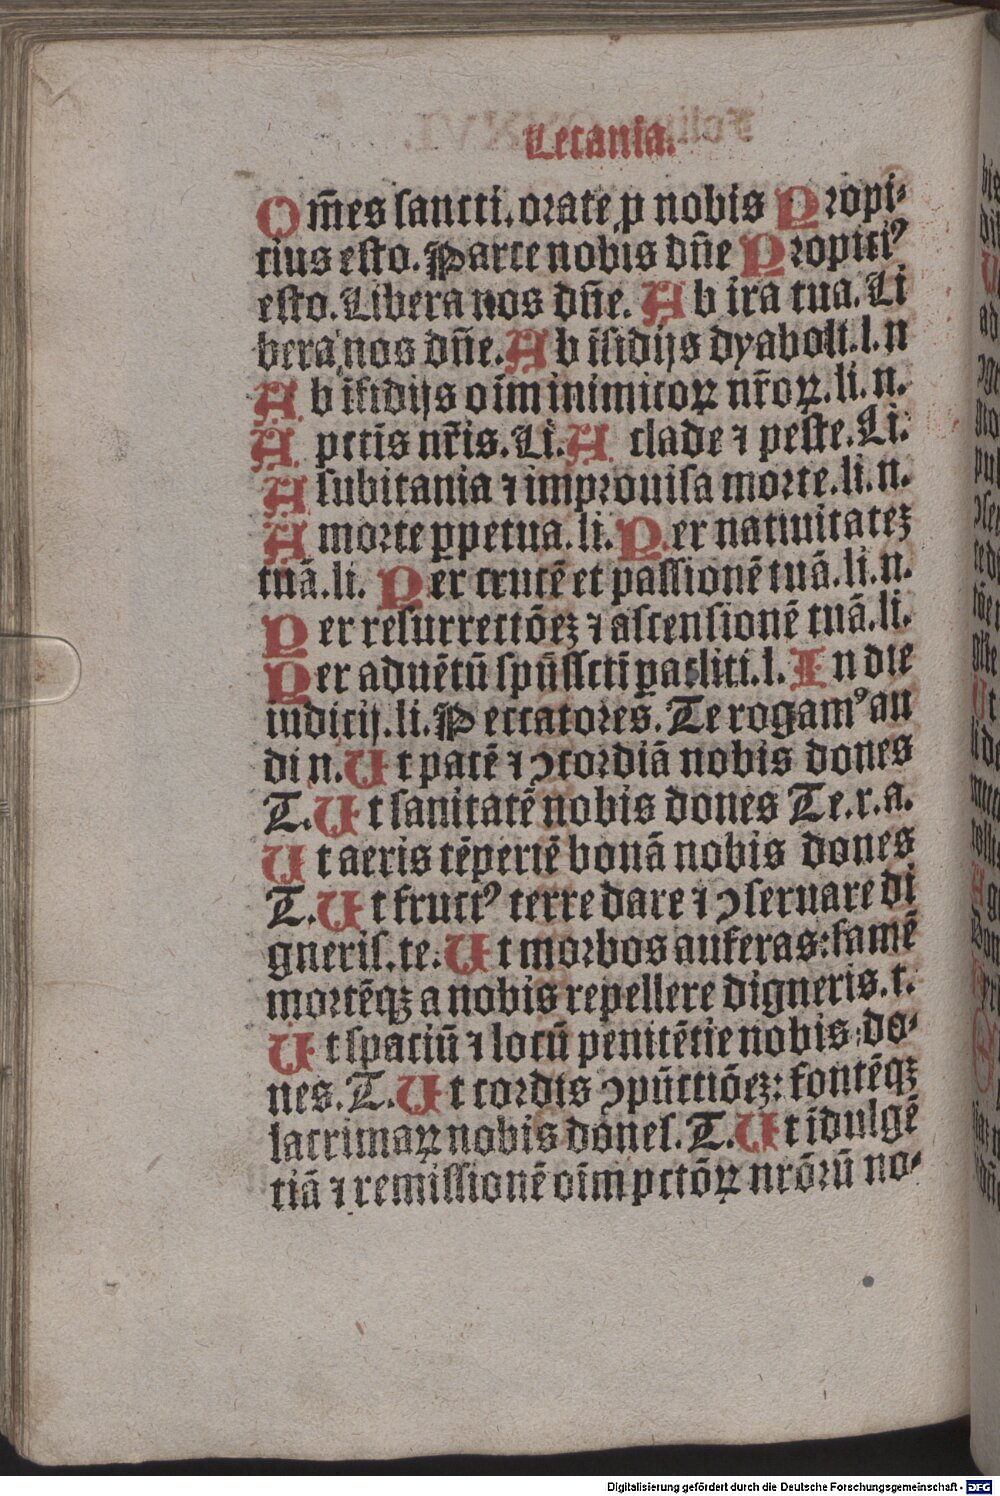 Letania.
Om̄es sancti. orate ꝓ nobis Propi⸗
cius esto. Parce nobis dn̄e Propiciꝰ
esto. Libera nos dn̄e. Ab ira tua. Li
bera nos dn̄e. Ab īsidijs dyaboli. l. n
Ab īsidijs oīm inimicoꝝ nr̄oꝝ. li. n.
A pctīs nr̄is. Li. A clade ⁊ peste. Li.
A subitania ⁊ improuisa morte. li. n.
A morte ꝑpetua. li. Per natiuitateꝫ
tuā. li. Per crucē et passionē tuā. li. n.
Per resurrectōeꝫ ⁊ ascensionē tuā. li.
Per aduētū spūssctī ꝑacliti. l. In die
iudicij. li. Peccatores. Te rogamꝰ au
di n. Ut pacē ⁊ ↄcordiā nobis dones
T. Ut sanitatē nobis dones Te. r. a.
Ut aeris tēperiē bonā nobis dones
T. Ut fructꝰ terre dare ⁊ ↄseruare di
gneris. te. Ut morbos auferas: famē
mortēqꝫ a nobis repellere digneris. t.
Ut spaciū ⁊ locū penitētie nobis do⸗
nes. T. Ut cordis ↄpūctiōeꝫ: fontēqꝫ
lacrimaꝝ nobis dones. T. Ut īdulgē
tiā ⁊ remissionē oīm pctōꝝ nrōrū no⸗
Digitalisierung gefördert durch die Deutsche Forschungsgemeinschaft - DFG